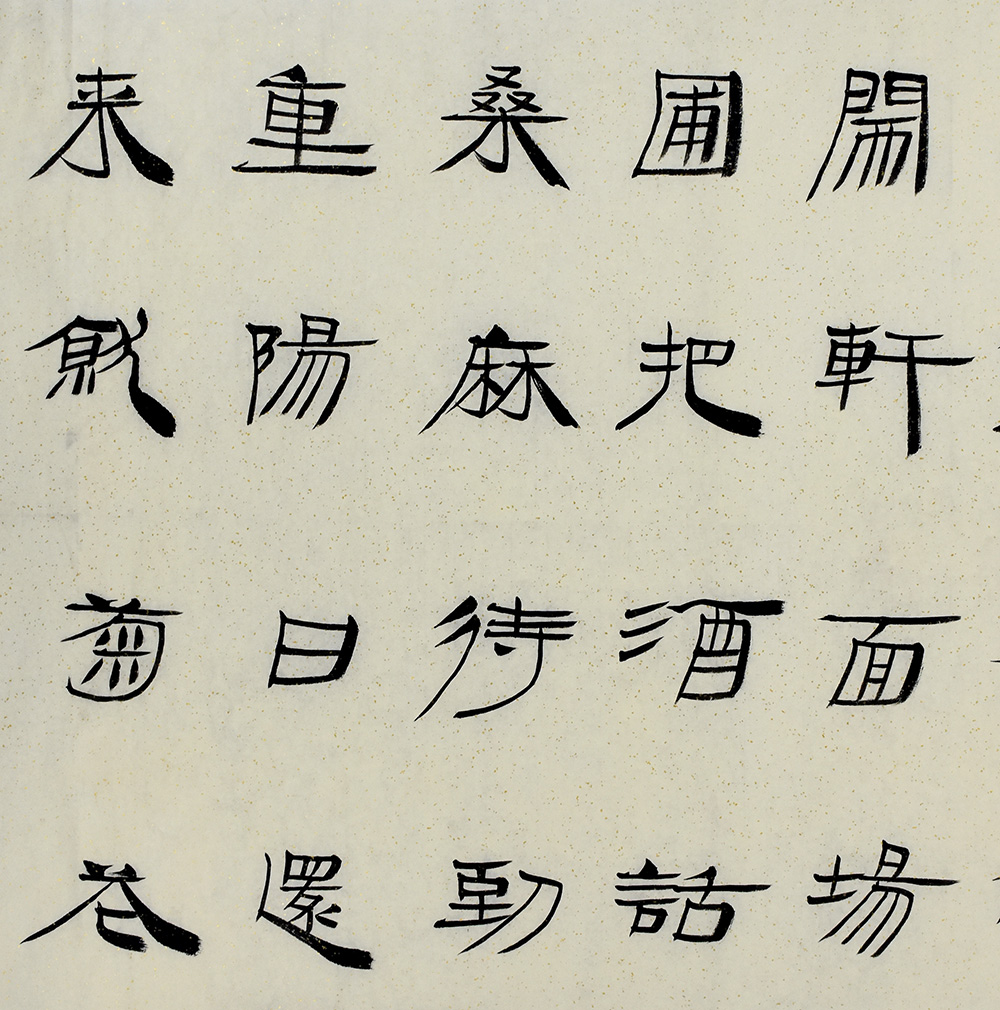 開軒面場
圃把酒話
桑麻待到
重陽日還
来就菊花